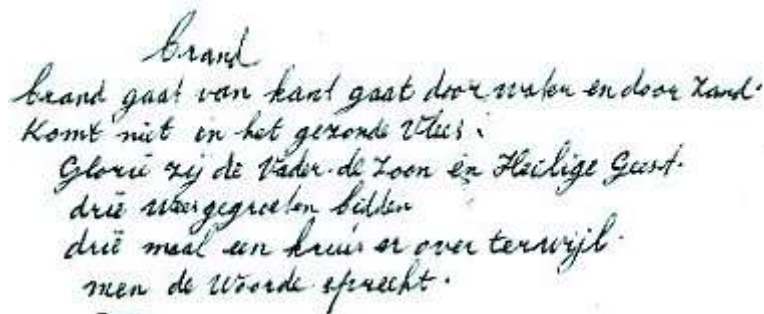 brand
brand gaat van kant gaat door water en door zand.
Komt niet in het gezonde Vlees.
Glorië zij de Vader. de Zoon en Heilige Geest.
drië weesgegroeten bidden
drië maal een kruis er over terwijl.
men de woorde sprecht.